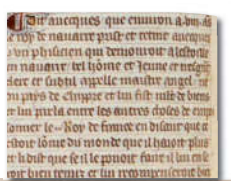 Dit auecques que enuiron a .vin. ās
le roy de nauarre prist et retint auecques
vn phisicien qui demouroit a lestoille
en nauarre bel hōme et Jeune et tresgrāt
clerc et subtil appelle maistre angel ne
du pays de Chippre et lui fist mlt de biens
et lui parla entre les autres choses de emp
sonner le Roy de france en disant que cē
estoit lōme du monde que il haioit plus
et li dist que se il le pouoit faire il lui en se
roit bien tenuz et lui recompenseroit bien